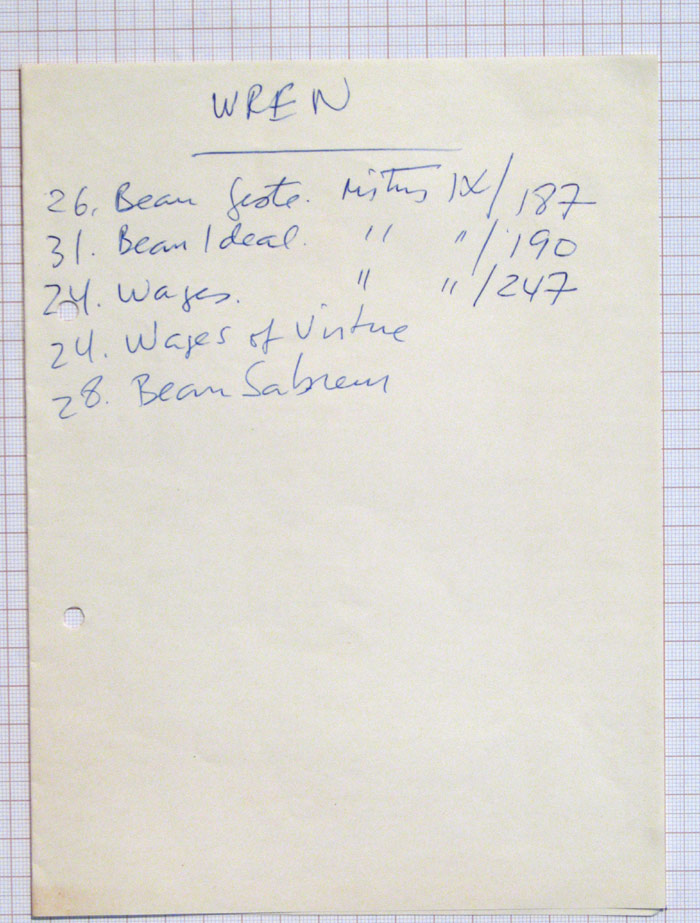 WREN
26. Beau Geste. IX/187
31. Beau Ideal. " "/190
24. Wages. " "/247
24. Wages of Virtue
28. Beau Sabreur